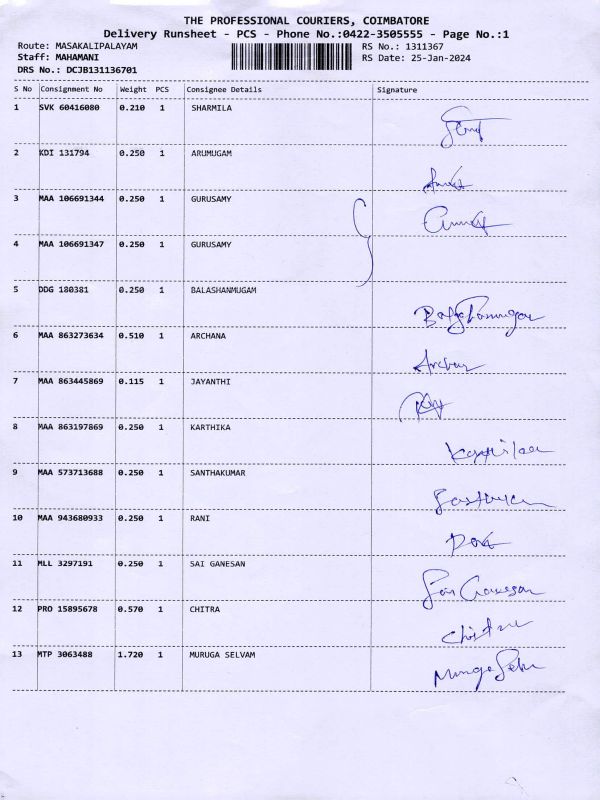 THE PROFESSIONAL COURIERS, COIMBATORE
Delivery Runsheet - PCS - Phone No.:0422-3505555 - Page No.:1
Route: MASAKALIPALAYAM RS No.: 1311367
Staff: MAHAMANI RS Date: 25-Jan-2024
DRS No.: DCJB131136701
S No Consignment No Weight PCS Consignee Details Signature
1 SVK 60416080 0.210 1 SHARMILA
2 KDI 131794 0.250 1 ARUMUGAM
3 MAA 106691344 0.250 1 GURUSAMY
4 MAA 106691347 0.250 1 GURUSAMY
5 DDG 180381 0.250 1 BALASHANMUGAM
6 MAA 863273634 0.510 1 ARCHANA
7 MAA 863445869 0.115 1 JAYANTHI
8 MAA 863197869 0.250 1 KARTHIKA
9 MAA 573713688 0.250 1 SANTHAKUMAR
10 MAA 943680933 0.250 1 RANI
11 MLL 3297191 0.250 1 SAI GANESAN
12 PRO 15895678 0.570 1 CHITRA
13 MTP 3063488 1.720 1 MURUGA SELVAM